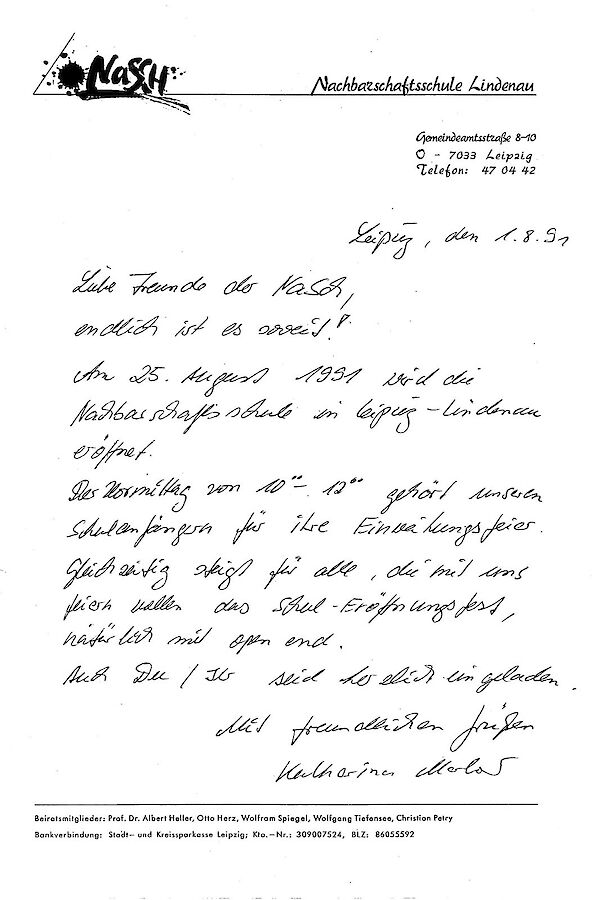 NaSCH
Nachbarschaftsschule Lindenau
Gemeindeamtsstraße 8-10
O - 7033 Leipzig
Telefon: 47 04 42
Leipzig, den 1.8.91
Liebe Freunde der NaSch,
endlich ist es soweit!
Am 25. August 1991 wird die
Nachbarschaftsschule in Leipzig-Lindenau
eröffnet.
Der Vormittag von 10⁰⁰- 12⁰⁰ gehört unseren
Schulanfängern für ihre Einweihungsfeier.
Gleichzeitig steigt für alle, die mit uns
feiern wollen das Schul-Eröffnungsfest,
natürlich mit open end.
Auch Du / Ihr seid herzlich eingeladen.
Mit freundlichen Grüßen
Katharina
Beiratsmitglieder: Prof. Dr. Albert Heller, Otto Herz, Wolfram Spiegel, Wolfgang Tiefensee, Christian Petry
Bankverbindung: Stadt- und Kreissparkasse Leipzig; Kto.-Nr.: 309007524, BLZ: 86055592